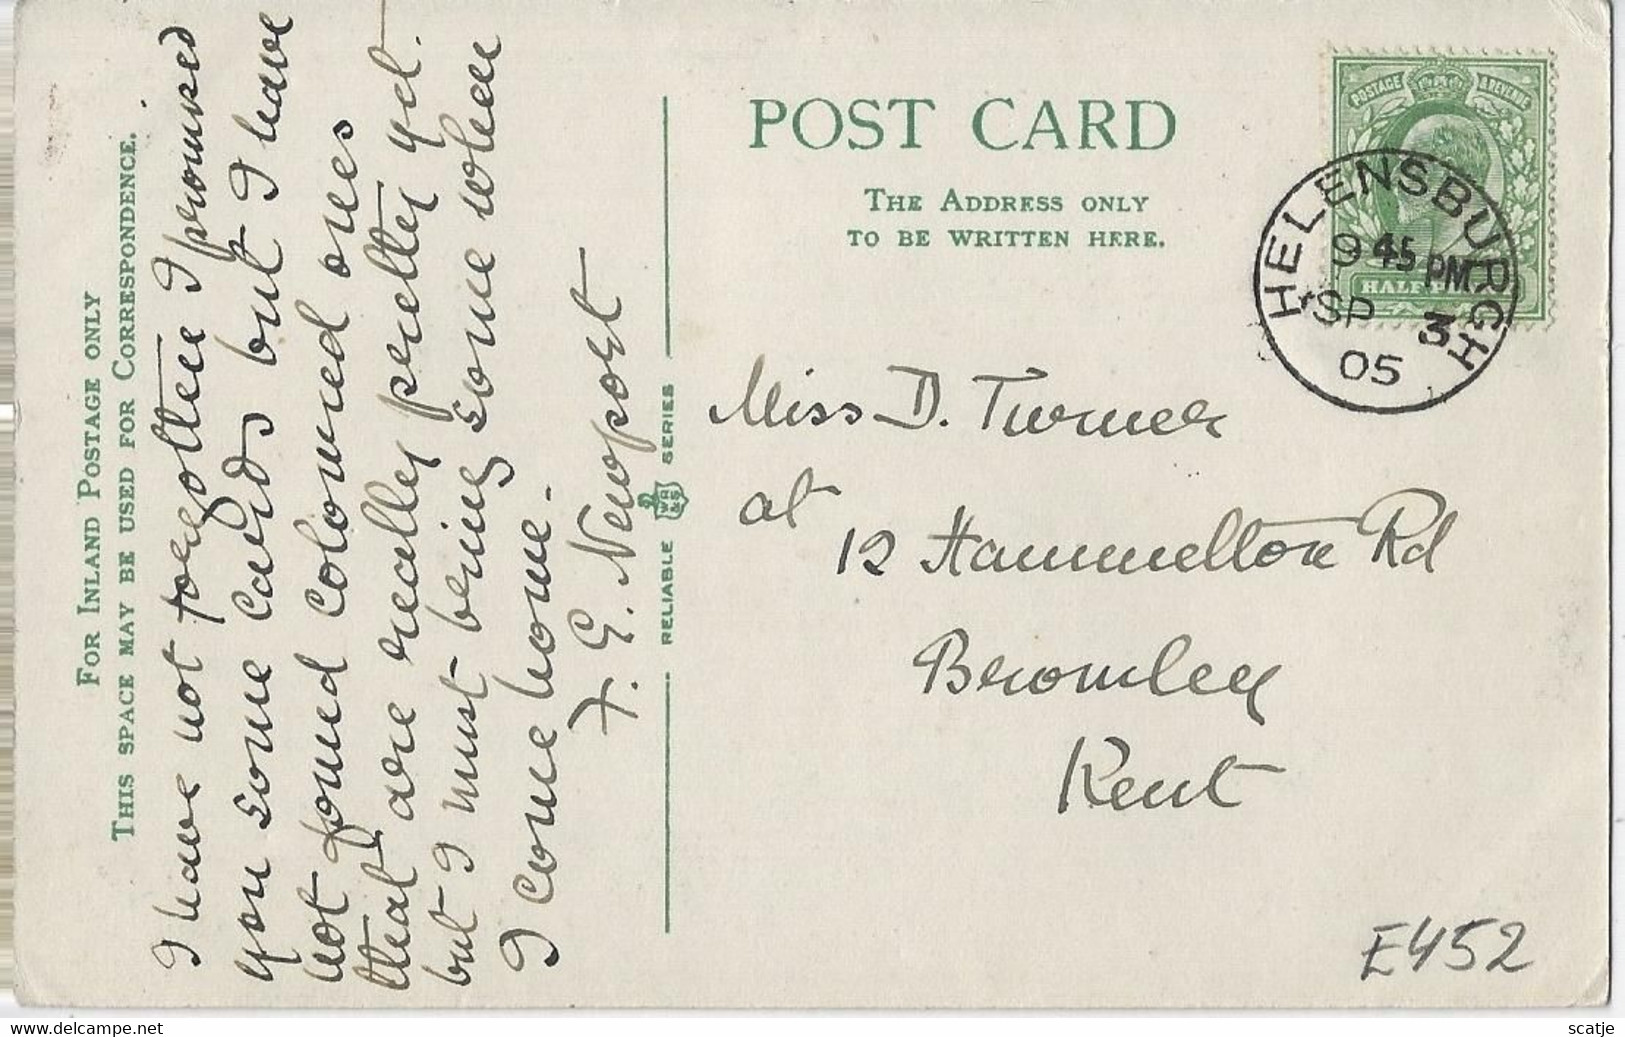 FOR INLAND POSTAGE ONLY
THIS SPACE MAY BE USED FOR CORRESPONDENCE.
I have not forgotten I promised
you some cards but I have
not found coloured ones
that are really pretty yet.
but I must bring some when
I come home.
F. E. Newport
RELIABLE WR&S SERIES
POST CARD
THE ADDRESS ONLY
TO BE WRITTEN HERE.
POSTAGE & REVENUE
HALF
HELENSBURGH
9 45 PM
SP 3
05
Miss D. Turner
at
12 Hammelton Rd
Bromley
Kent
E452
delcampe.net
scatje